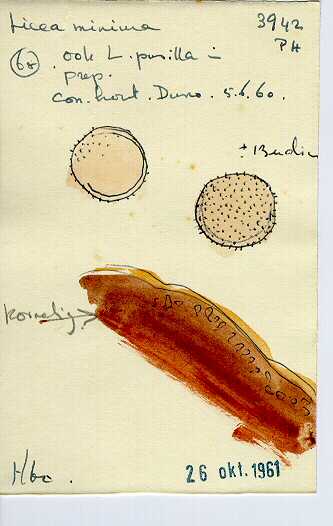 Licea minima 3942
PH
68 . ook L. pusilla in
prep.
con. hort. Duno. 5.6.60.
korrelig
Hbo.
26 okt. 1961